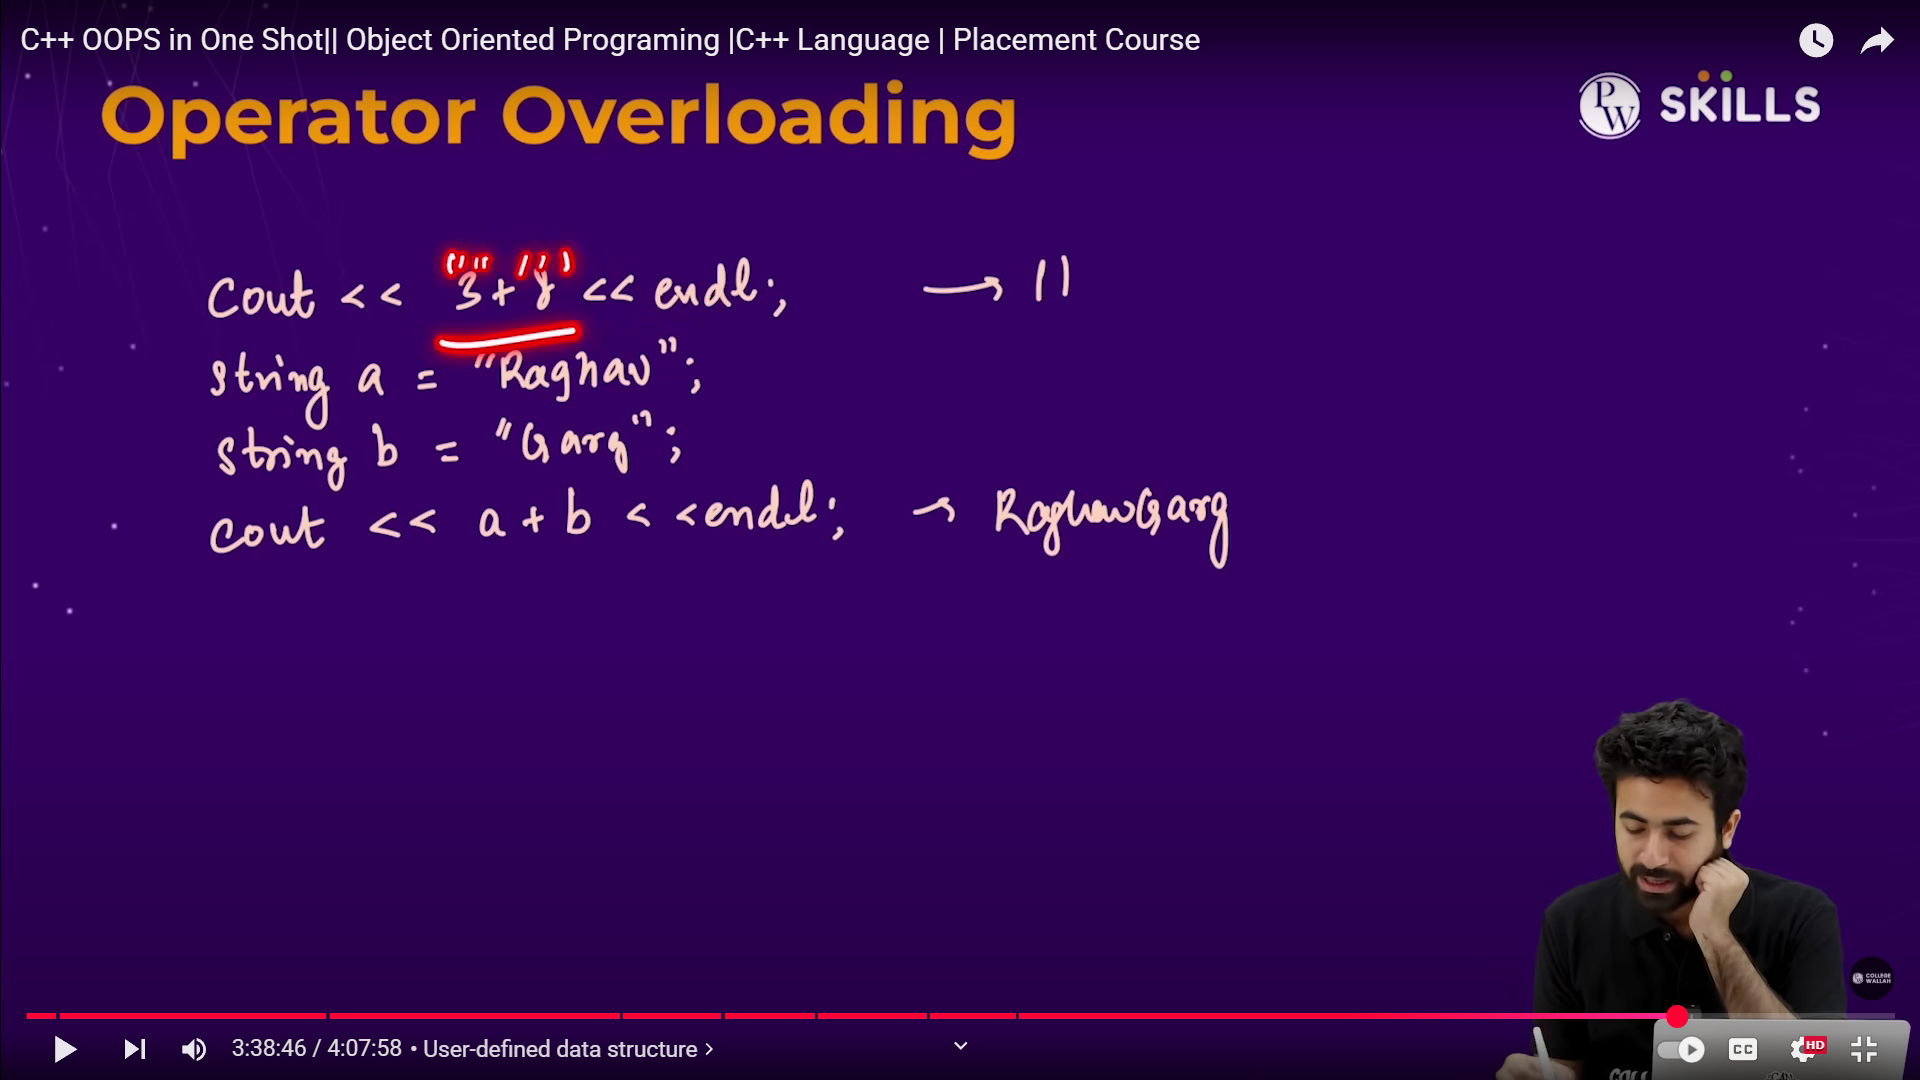 C++ OOPS in One Shot|| Object Oriented Programing |C++ Language | Placement Course
Operator Overloading
PW SKILLS
Cout << "3"+"8" << endl; → 11
String a = "Raghav";
String b = "Garg";
Cout << a + b << endl; → RaghavGarg
COLLEGE
WALLAH
3:38:46 / 4:07:58 • User-defined data structure >
CC
HD